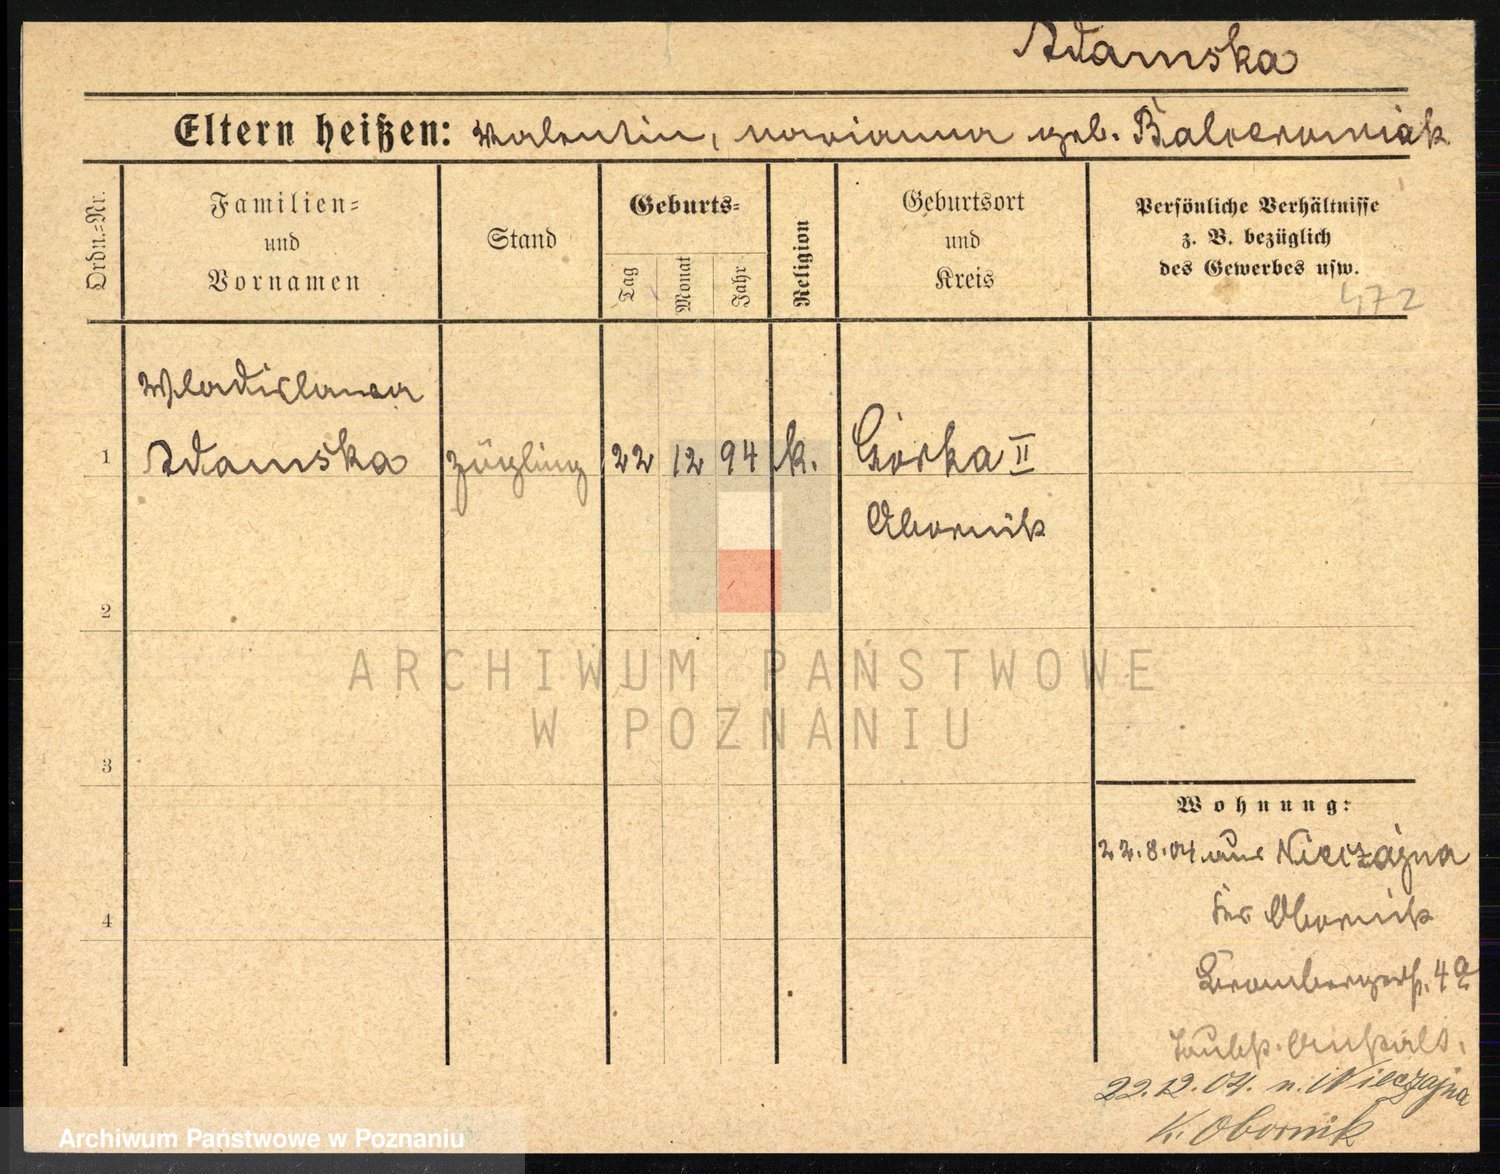 Adamska
Eltern heißen: Valentin, Marianna geb. Balcerowiak
Ordn.-Nr.
Familien-
und
Vornamen
Stand
Geburts-
Tag
Monat
Jahr
Religion
Geburtsort
und
Kreis
Persönliche Verhältnisse
z. B. bezüglich
des Gewerbes usw.
472
Wladislawa
1 Adamska Zögling 22 12 94 k. Górka II
Obornik
2
ARCHIWUM PAŃSTWOWE
W POZNANIU
3
Wohnung:
22.8.04 aus Nieczajna
Obornik
4
Brombergerstr. 4a
Taubst. Anstalt.
22.12.04. n. Nieczajna
K. Obornik
Archiwum Państwowe w Poznaniu